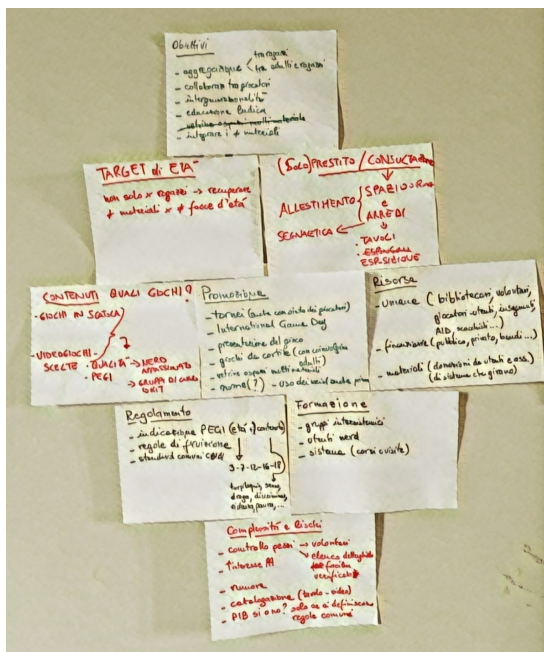 Obiettivi
tra ragazzi
- aggregazione < tra adulti e ragazzi
- collaboraz tra giocatori
- intergenerazionalità
- educazione ludica
- integrare i ≠ materiali
TARGET di ETÀ
non solo x ragazzi → recuperare
≠ materiali x ≠ fasce d'età
(Solo) PRESTITO / CONSULTAZIONE
ALLESTIMENTO { SPAZI
e
ARREDI
SEGNALETICA
· TAVOLI
ESPOSIZIONE
CONTENUTI QUALI GIOCHI?
- GIOCHI IN SCATOLA
- VIDEOGIOCHI
SCELTE · QUALITÀ → NERD
APPASSIONATO
· PEGI → GRUPPI DI
Promozione
- tornei (anche con aiuto dei giocatori)
- International Game Day
- presentazione del gioco
- giochi da cortile (con
adulti)
- vetrine
- nome (?) - uso dei social anche prima
Risorse
- umane (bibliotecari, volontari,
giocatori utenti, insegnanti,
AID, scacchisti...)
- finanziarie (pubblico, privato, bandi...)
- materiali (donazioni da utenti e ass.)
(di sistema che girano)
Regolamento
- indicazione PEGI (età / contenuto)
- regole di fruizione
- standard comuni
3-7-12-16-18
turpiloquio, sesso,
droga, discriminaz,
paura,...
Formazione
- gruppi intersistemici
- utenti nerd
- sistema (corsi e visite)
Complessità e Rischi
- controllo pezzi → volontari
elenco dettagliato
verificabile
- internet
- rumore
- catalogazione (tavolo - video)
- PIB si o no? solo se si definiscono
regole comuni